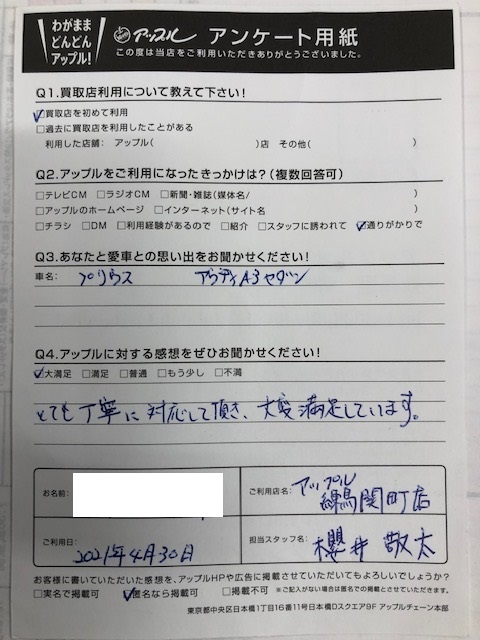 わがまま
どんどん
アップル!
アップル アンケート用紙
この度は当店をご利用いただきありがとうございました。
Q1.買取店利用について教えて下さい!
☑買取店を初めて利用
□過去に買取店を利用したことがある
利用した店舗: アップル( )店 その他( )
Q2.アップルをご利用になったきっかけは?(複数回答可)
□テレビCM □ラジオCM □新聞・雑誌(媒体名/ )
□アップルのホームページ □インターネット(サイト名 )
□チラシ □DM □利用経験があるので □紹介 □スタッフに誘われて ☑通りがかりで
Q3.あなたと愛車との思い出をお聞かせください!
車名: プリウス アウディA3セダン
Q4.アップルに対する感想をぜひお聞かせください!
☑大満足 □満足 □普通 □もう少し □不満
とても丁寧に対応して頂き、大変満足しています。
お名前:
ご利用店名: アップル
練馬関町店
ご利用日: 2021年4月30日
担当スタッフ名: 櫻井 敬太
お客様に書いていただいた感想を、アップルHPや広告に掲載させていただいてもよろしいでしょうか?
□実名で掲載可 ☑匿名なら掲載可 □掲載不可 ※ご記入がない場合は匿名での掲載とさせていただきます。
東京都中央区日本橋1丁目16番11号日本橋Dスクエア9F アップルチェーン本部